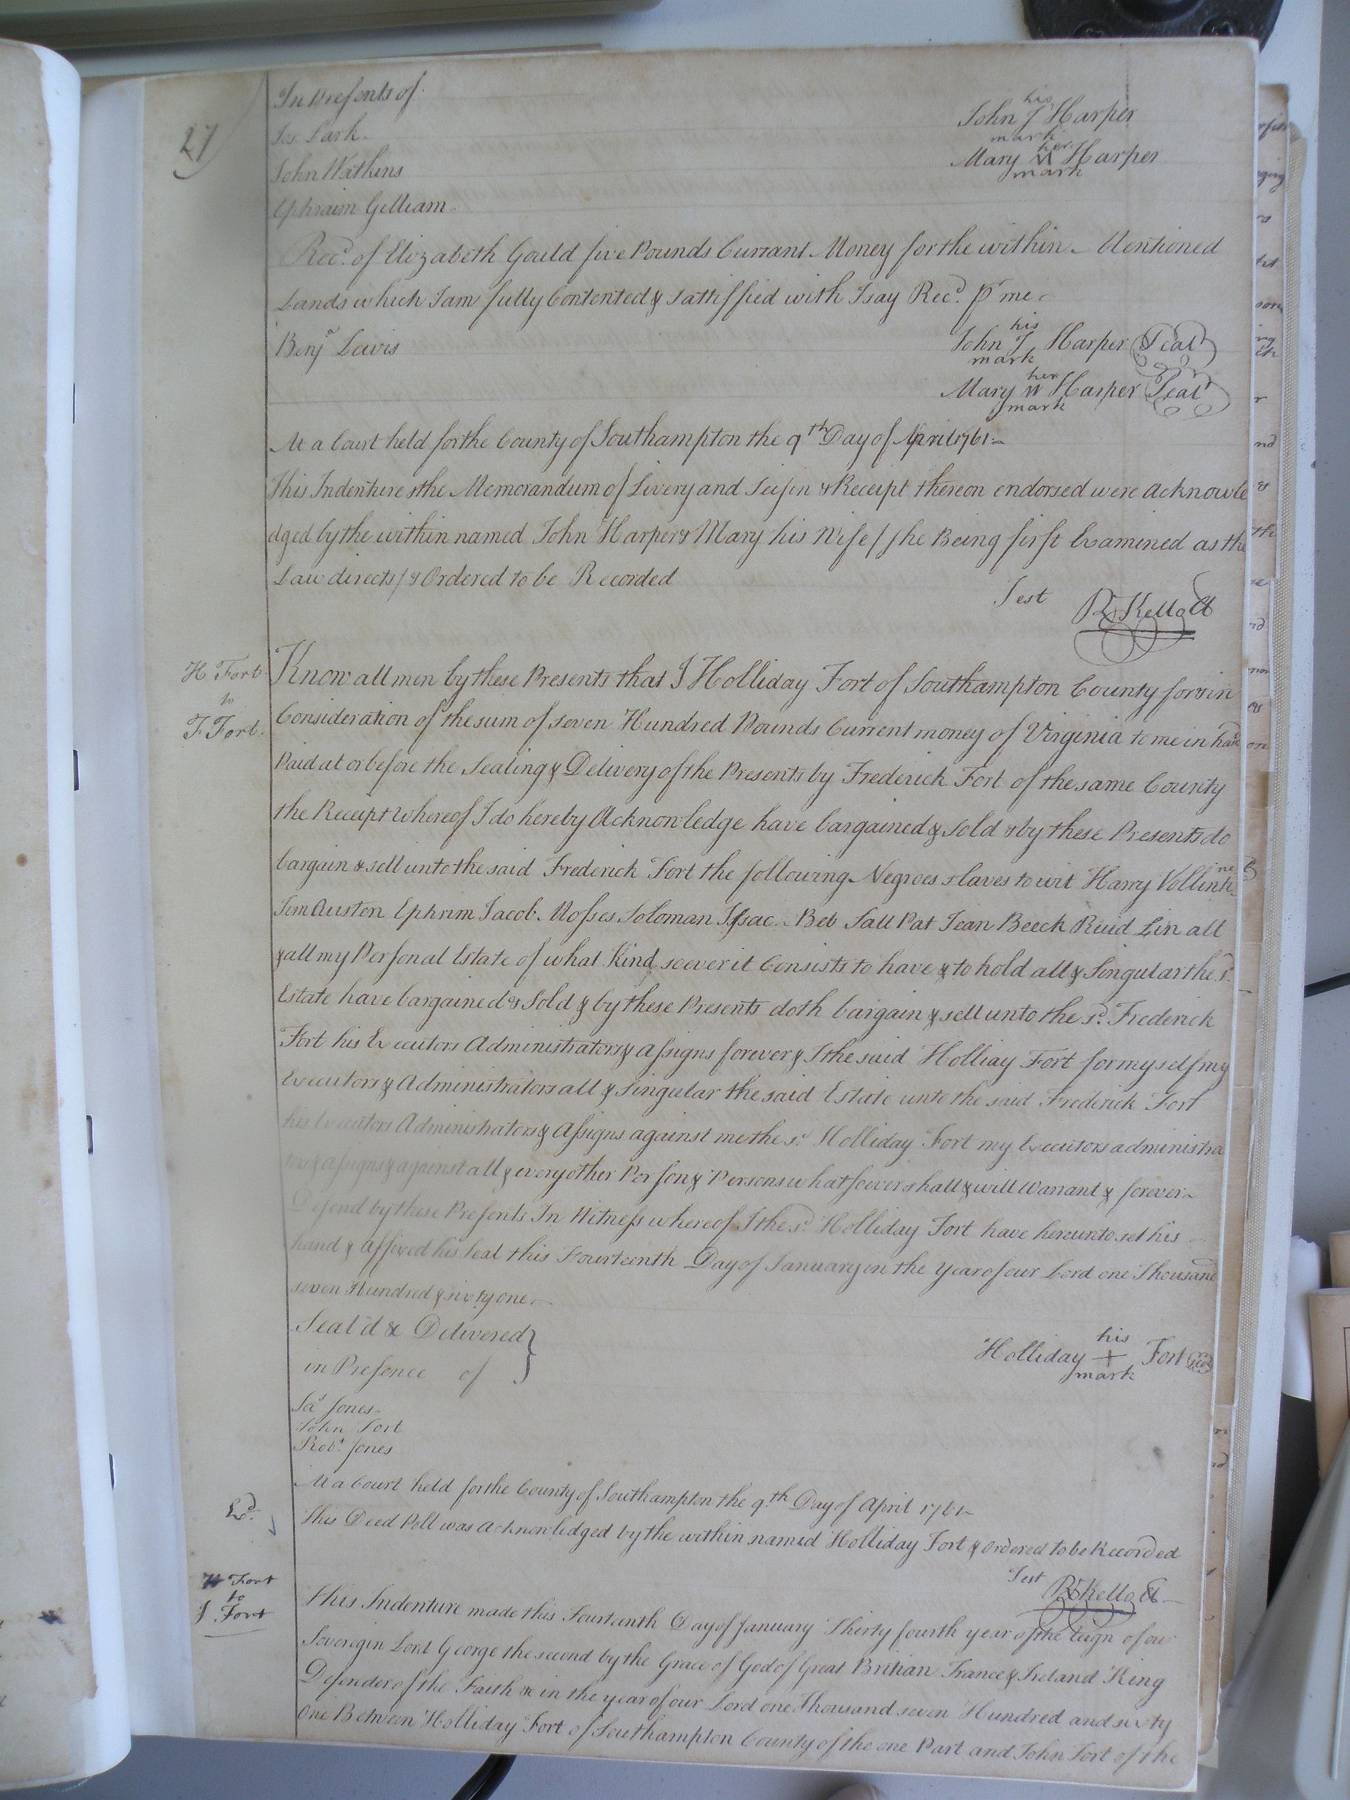 27
In Presents of
Jos. Lark
John Watkins
Ephraim Gilliam
his
John J Harper
mark
her
Mary M Harper
mark
Recd. of Elizabeth Gould five Pounds Currant Money for the within Mentioned
Lands which I am fully Contented & sattisfied with I say Recd. pr me
Benja Lewis
his
John J Harper Seal
mark
her
Mary M Harper Seal
mark
At a Court held for the County of Southampton the 9th Day of April 1761
This Indenture & the Memorandum of Livery and Seisin & Receipt thereon endorsed were acknowle
dged by the within named John Harper & Mary his Wife / she Being first Examined as the
Law directs / & Ordered to be Recorded
Test
R Kello Ct
H Fort
to
F Fort
Know all men by these Presents that I Holliday Fort of Southampton County for & in
Consideration of the sum of seven Hundred Pounds Current money of Virginia to me in hand
Paid at or before the Sealing & Delivery of the Presents by Frederick Fort of the same County
the Receipt Whereof I do hereby Acknowledge have bargained & sold & by these Presents do
bargain & sell unto the said Frederick Fort the following Negroes slaves to wit Harry
Jem Austen Ephrim Jacob Mosses Soloman Issac Beb Sall Pat Jean Beeck Lin all
& all my Personal Estate of what Kind soever it Consists to have & to hold all & Singular the sd.
Estate have bargained & Sold & by these Presents doth bargain & sell unto the sd. Frederick
Fort his Executors Administrators & Assigns forever & I the said Holliay Fort for my self my
Executors & Administrators all & singular the said Estate unto the said Frederick Fort
his Executors Administrators & Assigns against me the sd. Holliday Fort my Executors administra
tors & assigns & against all & every other Person & Persons whatsoever shall & will Warrant & forever
Defend by these Presents In Witness whereof I the sd. Holliday Fort have hereunto set his
hand & affixed his seal this Fourteenth Day of January in the Year of our Lord one Thousand
seven Hundred & sixty one
Seal'd & Delivered
in Presence of
his
Holliday + Fort Seal
mark
Jas Jones
John Fort
Robt. Jones
At a Court held for the County of Southampton the 9th Day of April 1761
This Deed Poll was acknowledged by the within named Holliday Fort & ordered to be Recorded
Test
R Kello Ct
H Fort
to
J. Fort
This Indenture made this Fourteenth Day of January Thirty fourth year of the reign of our
Soveregin Lord George the second by the Grace of God of Great Britian France & Ireland King
Defender of the Faith &c in the year of our Lord one Thousand seven Hundred and sixty
One Between Holliday Fort of Southampton County of the one Part and John Fort of the